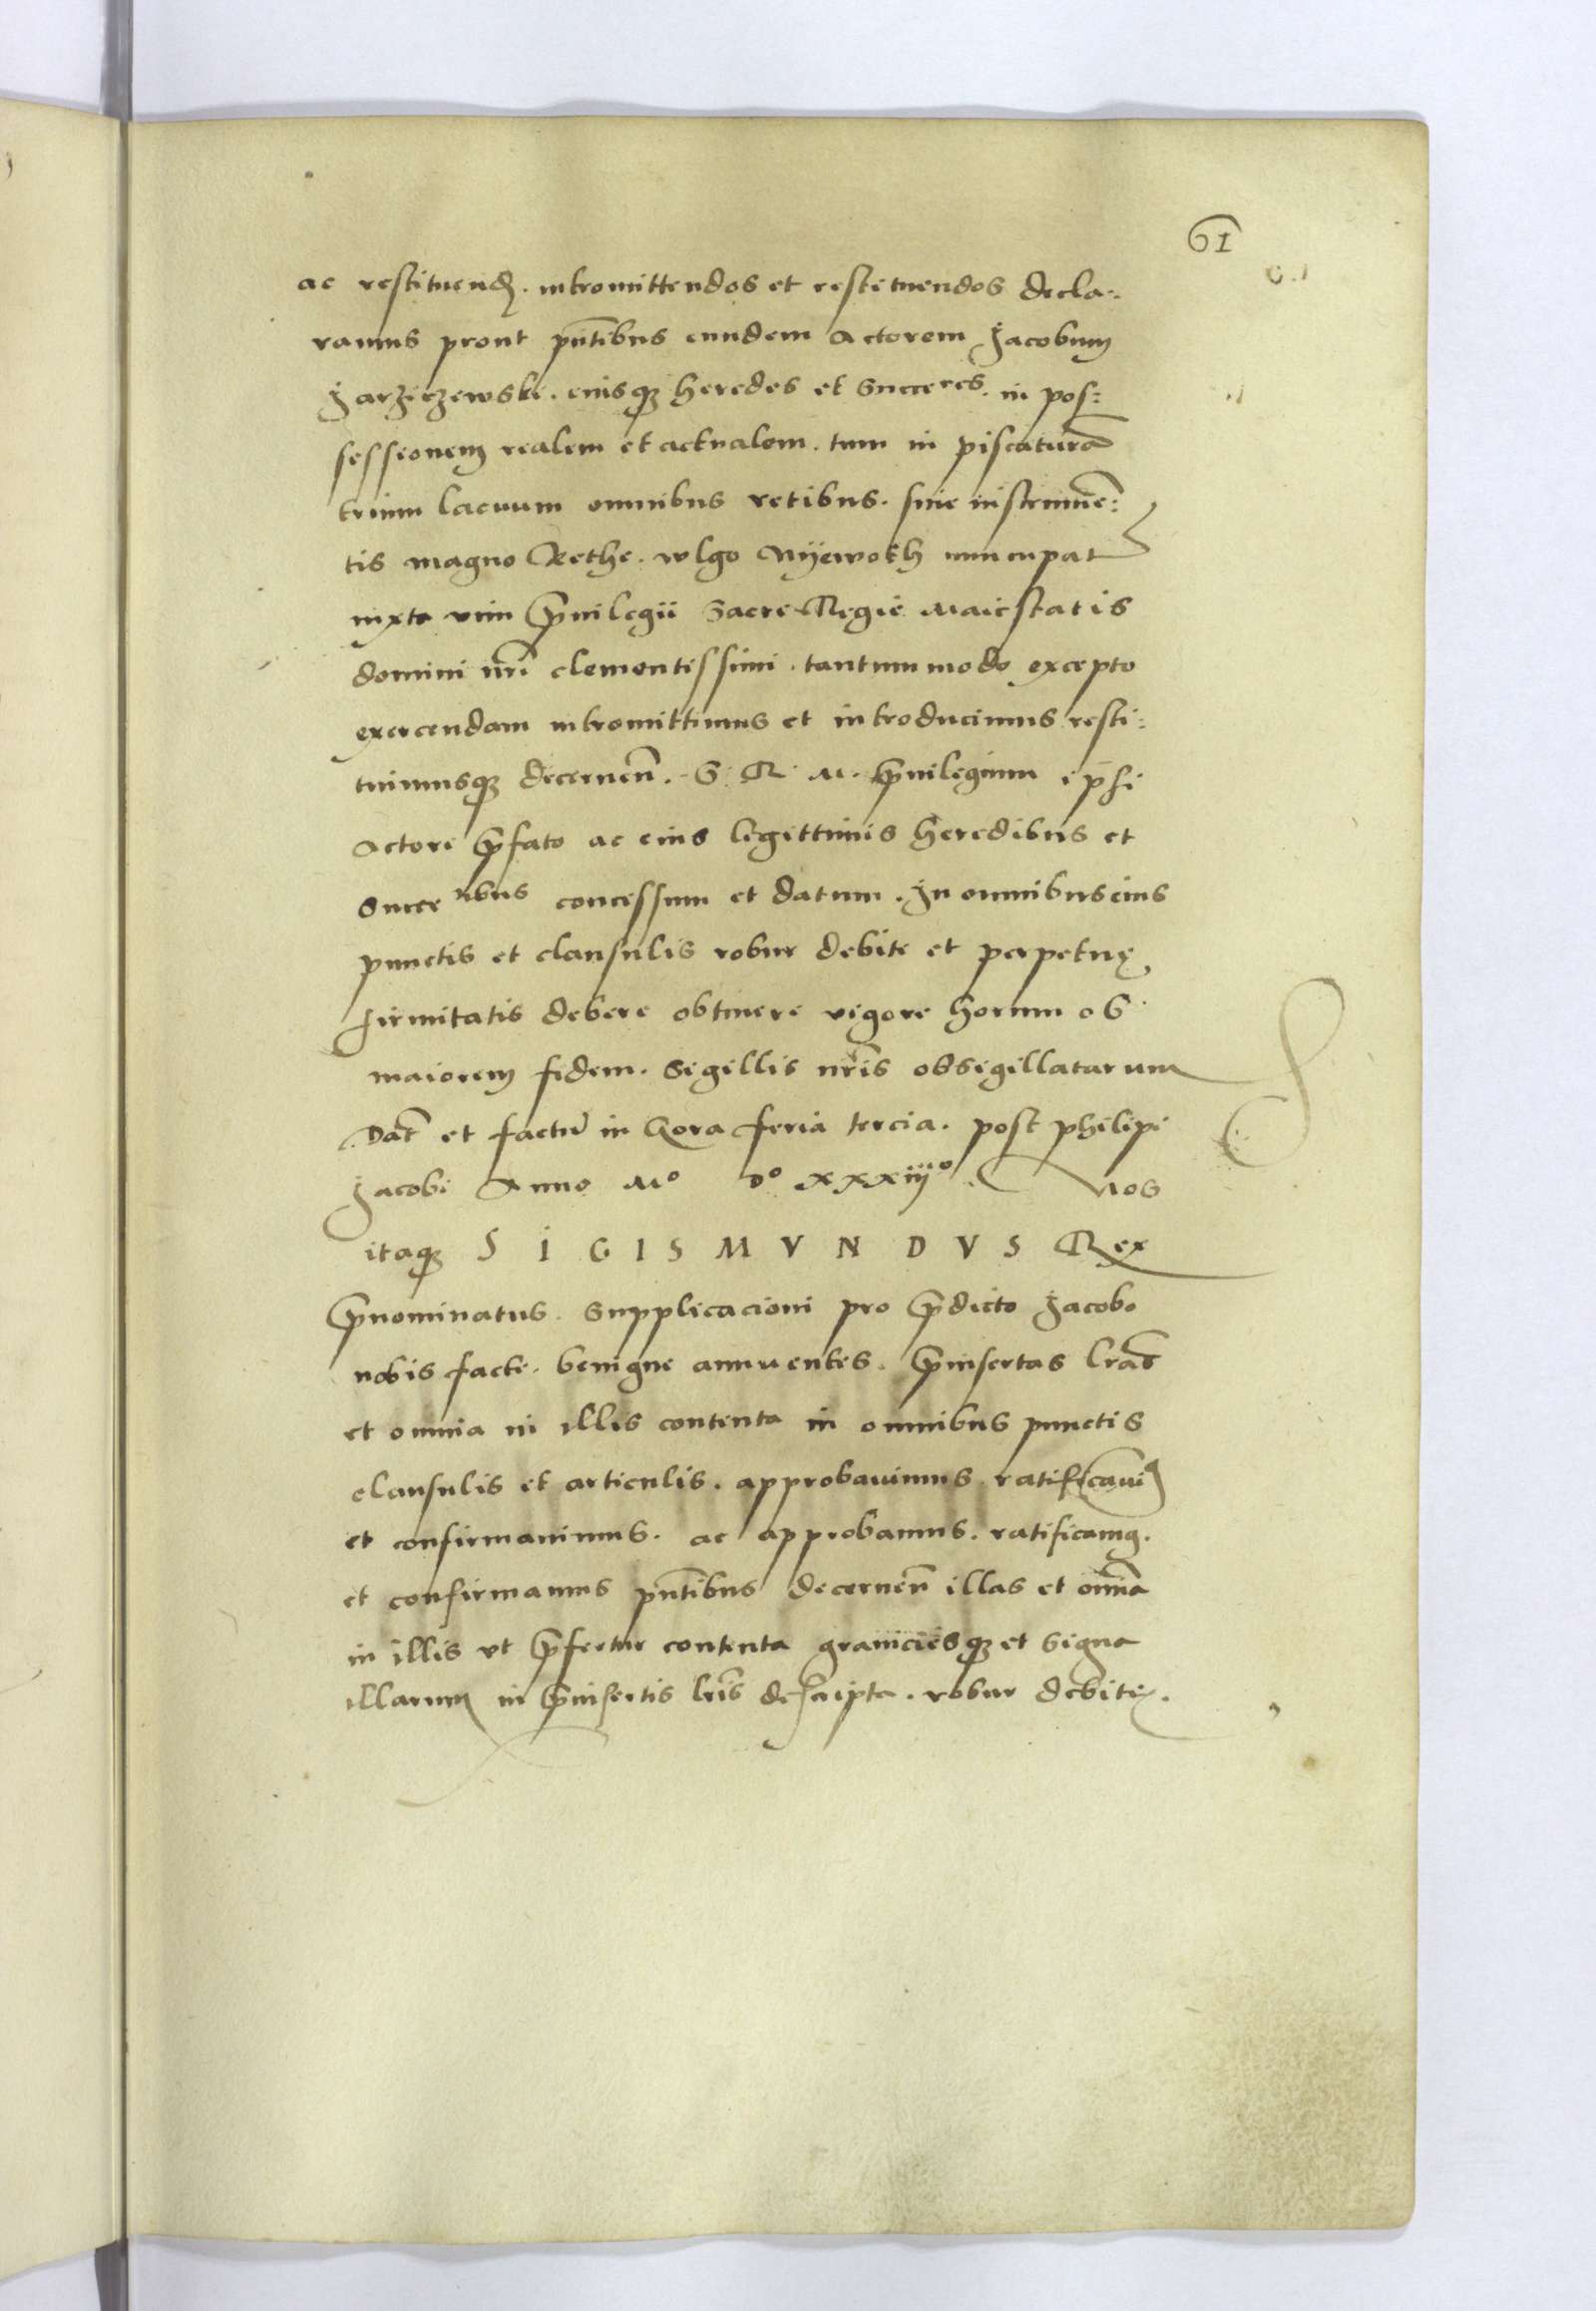 61
ac restituend. intromittendos et restituendos decla:
ramus prout pñtibus eundem Actorem Jacobum
Jarzeczewski. eiusq̨ heredes et Succeres. in pos:
sessionem realem et actualem. tum in piscaturā
trium lacuum omnibus retibus. siue instrumē:
tis magno Rethe. wlgo Nyewokh nuncupat
iuxta vim p̄uilegii Sacre Regie Maiestatis
domini nr̄i clementissimi. tantummodo excepto
exercendam intromittimus et introducimus resti:
tuimusq̨ decernen̄. S. R. M. p̄uilegium ipsi
Actori p̄fato ac eius legittimis heredibus et
Succeribus concessum et datum. In omnibus eius
punctis et clausulis robur debite et perpetuę
firmitatis debere obtinere vigore horum ob
maiorem fidem. Sigillis nr̄is obsigillatarum
Dat̄ et factū in Gora feria tercia. post philipi
Jacobi Anno Mo Do xxxiiio. Nos
itaq̨ S I G I S M V N D V S Rex
p̄nominatus. Supplicacioni pro p̄dicto Jacobo
nobis facte. benigne annuentes. p̄insertas lrās
et omnia in illis contenta in omnibus punctis
clausulis et articulis. approbauimus ratificauiꝰ
et confirmauimus. ac approbamus. ratificamꝰ.
et confirmamus pñtibus decernen̄ illas et om̄ia
in illis vt p̄fertur contenta graniciesq̨ et signa
illarum in p̄insertis lr̄is descripta. robur debite.